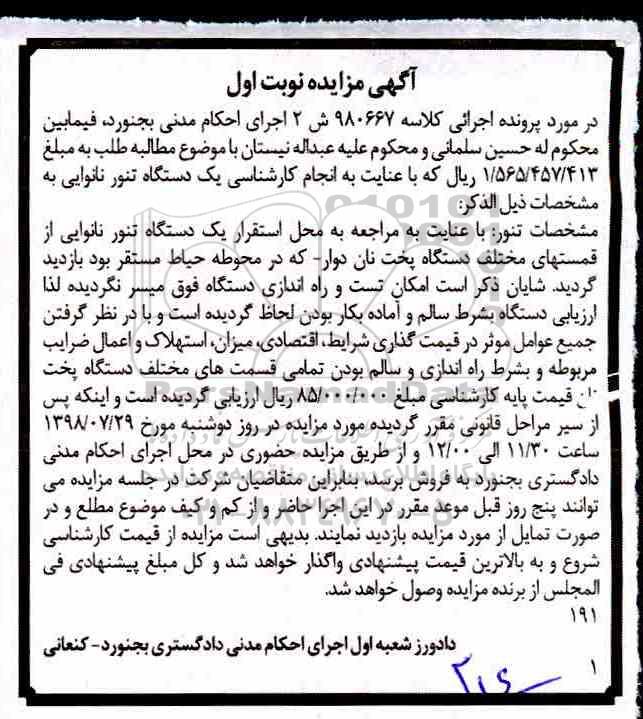 آگهی مزایده نوبت اول
در مورد پرونده اجرائی کلاسه ۹۸۰۶۶۷ ش ۲ اجرای احکام مدنی بجنورد، فیمابین
محکوم له حسین سلمانی و محکوم علیه عبداله نیستان با موضوع مطالبه طلب به مبلغ
۱/۵۶۵/۴۵۷/۴۱۳ ریال که با عنایت به انجام کارشناسی یک دستگاه تنور نانوایی به
مشخصات ذیل الذکر:
مشخصات تنور: با عنایت به مراجعه به محل استقرار یک دستگاه تنور نانوایی از
قمستهای مختلف دستگاه پخت نان دوار- که در محوطه حیاط مستقر بود بازدید
گردید. شایان ذکر است امکان تست و راه اندازی دستگاه فوق میسر نگردیده لذا
ارزیابی دستگاه بشرط سالم و آماده بکار بودن لحاظ گردیده است و با در نظر گرفتن
جمیع عوامل موثر در قیمت گذاری شرایط، اقتصادی، میزان، استهلاک و اعمال ضرایب
مربوطه و بشرط راه اندازی و سالم بودن تمامی قسمت های مختلف دستگاه پخت
نان قیمت پایه کارشناسی مبلغ ۸۵/۰۰۰/۰۰۰ ریال ارزیابی گردیده است و اینکه پس
از سیر مراحل قانونی مقرر گردیده مورد مزایده در روز دوشنبه مورخ ۱۳۹۸/۰۷/۲۹
ساعت ۱۱/۳۰ الی ۱۲/۰۰ و از طریق مزایده حضوری در محل اجرای احکام مدنی
دادگستری بجنورد به فروش برسد، بنابراین متقاضیان شرکت در جلسه مزایده می
توانند پنج روز قبل موعد مقرر در این اجرا حاضر و از کم و کیف موضوع مطلع و در
صورت تمایل از مورد مزایده بازدید نمایند. بدیهی است مزایده از قیمت کارشناسی
شروع و به بالاترین قیمت پیشنهادی واگذار خواهد شد و کل مبلغ پیشنهادی فی
المجلس از برنده مزایده وصول خواهد شد.
۱۹۱
دادورز شعبه اول اجرای احکام مدنی دادگستری بجنورد- کنعانی
۱